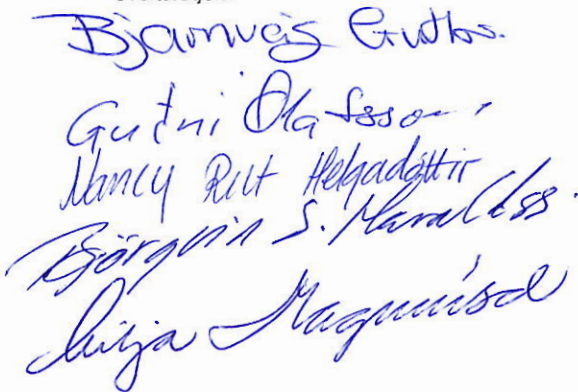 Guðni Ólafsson
Nancy Rut Helgadóttir
Björgvin S. Haraldss.
Lilja Magnúsd